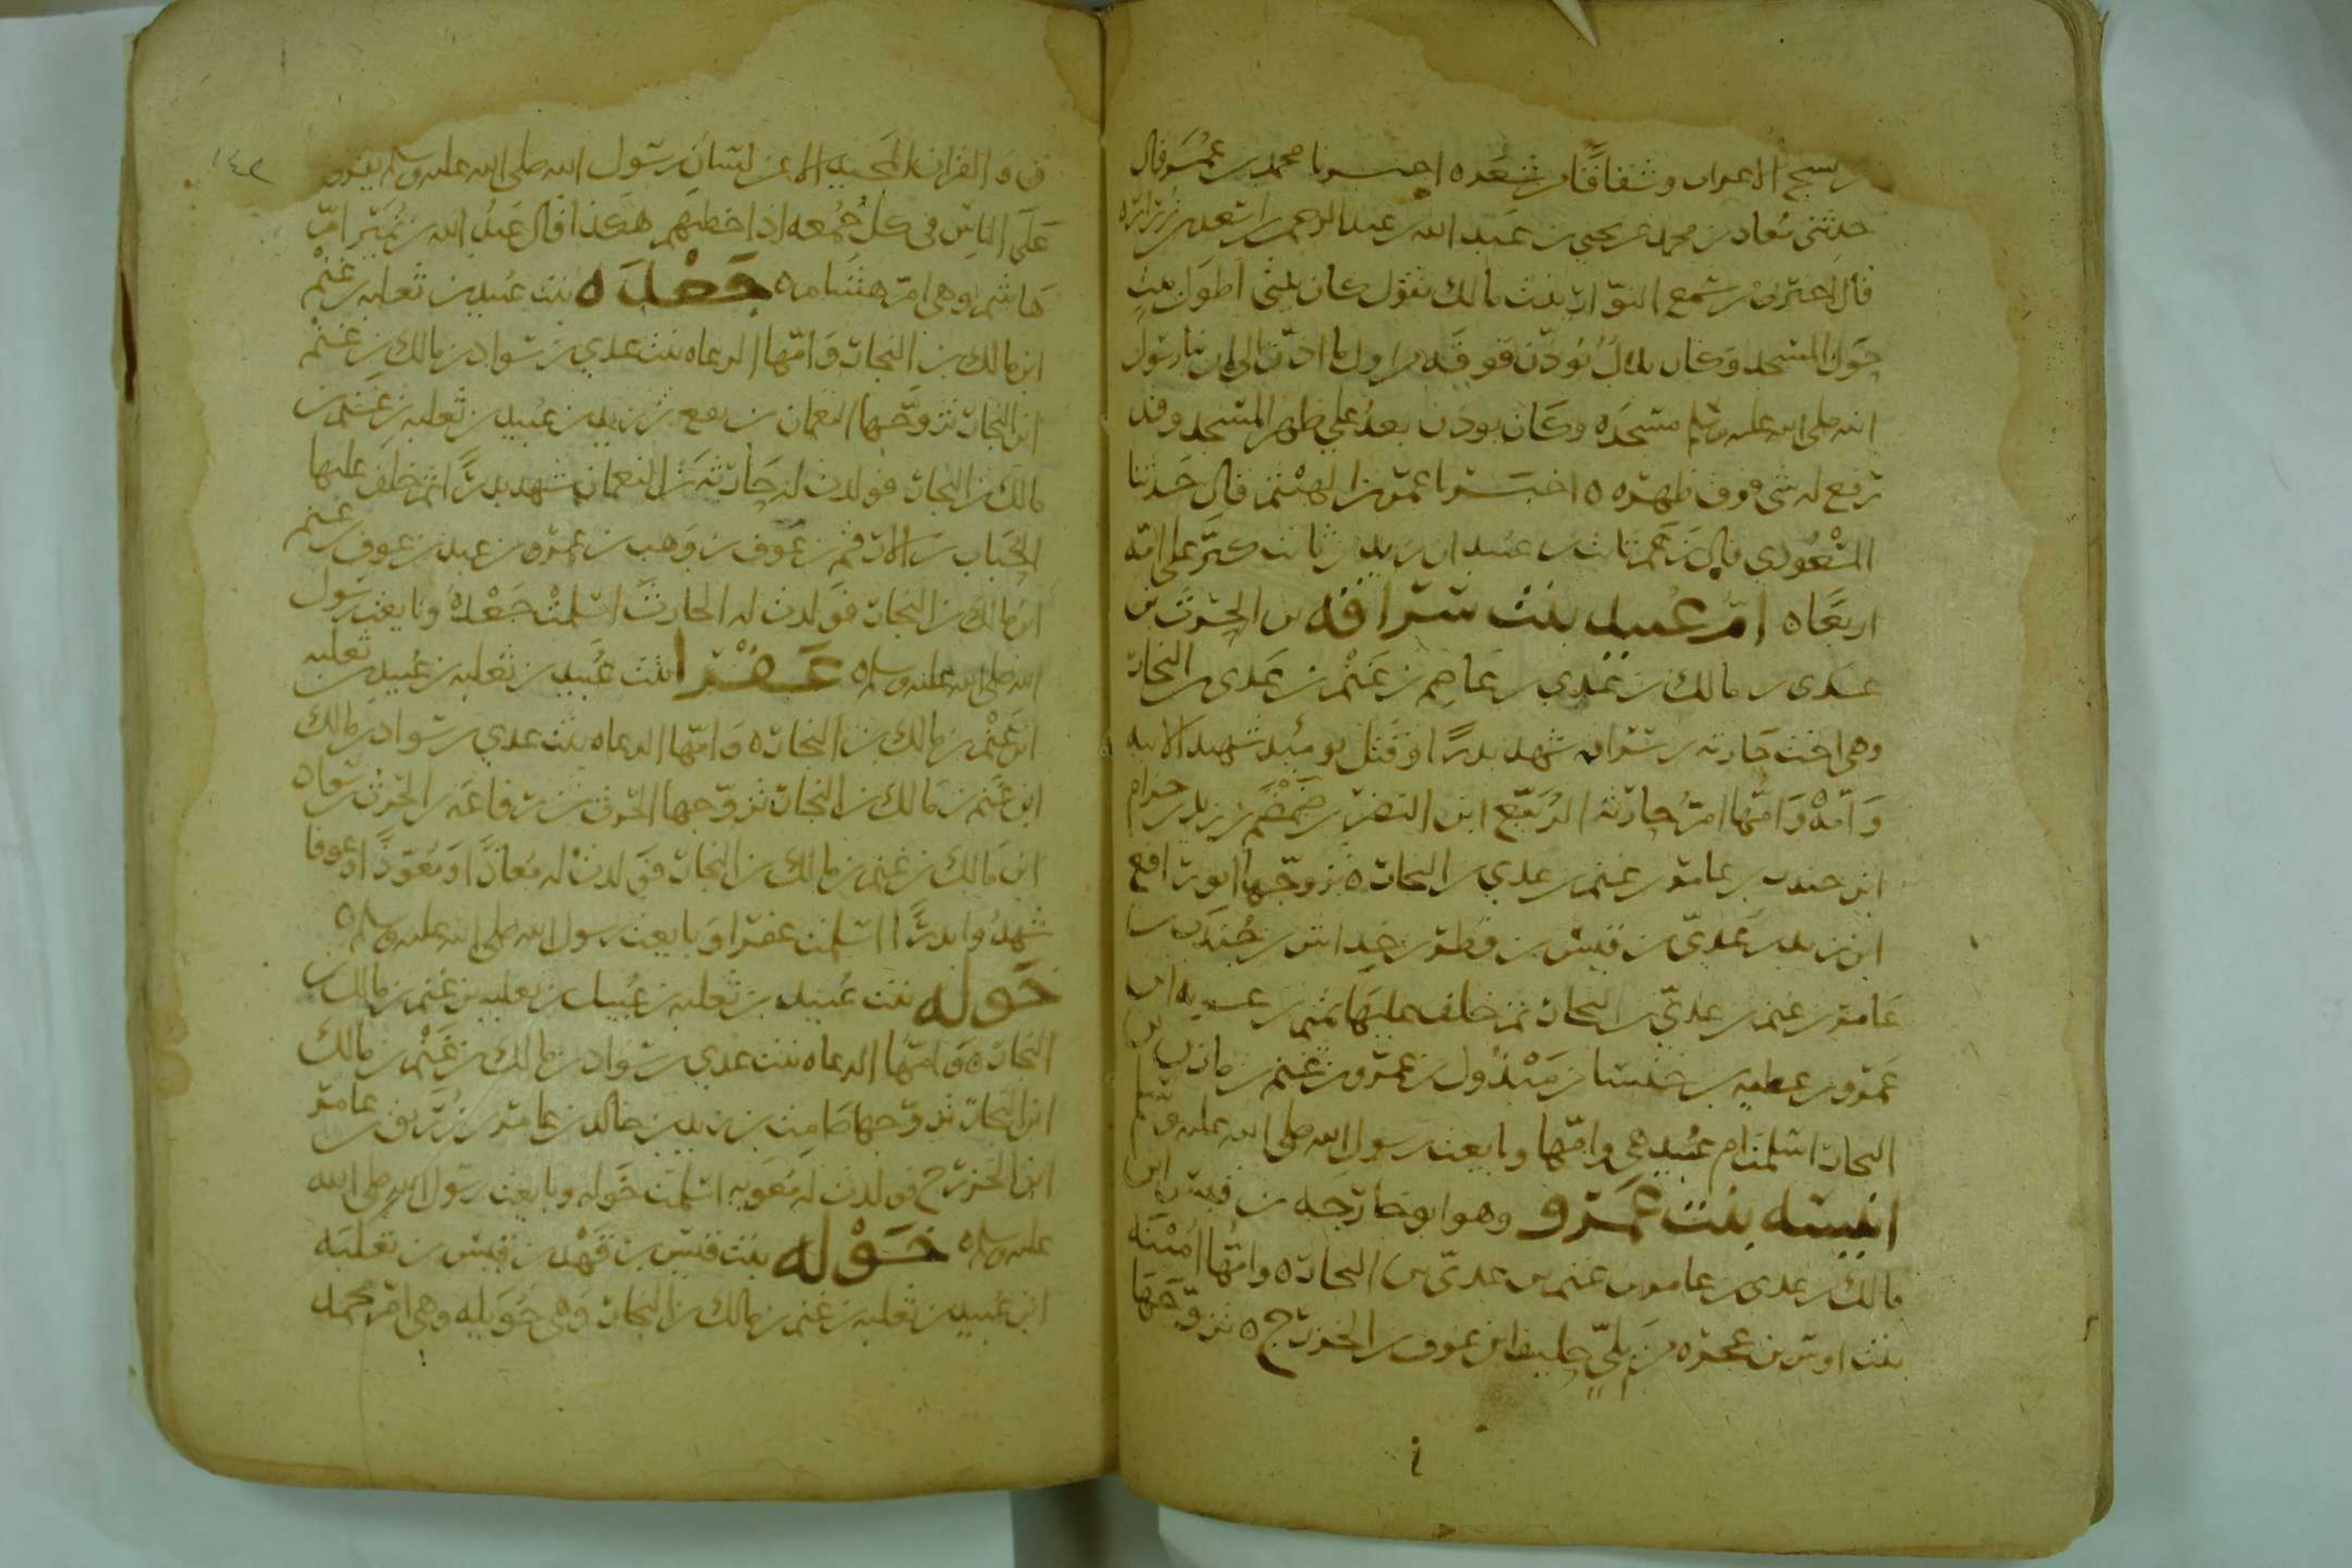 من نسج الاعراب وشقاقا من شعر ه اخبرنا محمد بن عمر قال
حدثني معاذ بن محمد عن يحيى بن عبد الله بن عبد الرحمن بن اسعد بن زرارة
قال اخبرني من سمع النوار بنت مالك تقول كان بيتي اطول بيت
حول المسجد وكان بلال يؤذن فوقه من اول ما اذن الى ان بنا رسول
الله صلى الله عليه وسلم مسجده وكان يوذن بعد على ظهر المسجد وقد
رفع له شي فوق ظهره ه اخبرنا عمرو بن الهيثم قال حدثنا
المسعودي قال زعم ثابت بن عبيد ان زيد بن ثابت كبر على امه
اربعا ه ام عبيد بنت سراقه بن الحرث بن
عدى بن مالك بن عدي بن عامر بن غنم بن عدى بن النجار
وهي اخت حارثه بن سراقه شهد بدرا وقتل يوميذ شهيدا لابيه
وامه وامها ام حارثه الربيع ابن النضر بن ضمضم بن زيد بن حرام
ابن جندب بن عامر بن غنم بن عدي بن النجار ه تزوجها
ابن زيد بن عدي بن قيس بن قطر بن خداش بن جندب بن
عامر بن غنم بن عدي بن النجار ثم خلف عليها غنم بن غزيه ابن
عمرو بن عطيه بن خنسا بن مبذول بن عمرو بن غنم بن مازن بن
النجار اسلمت ام عبيد هي وامها وبايعت رسول الله صلى الله عليه وسلم
انيسه بنت عمرو وهو ابو خارجه بن قيس ابن
مالك بن عدى بن عامر بن غنم بن عدي بن النجار ه وامها امينه
بنت اوس بن عجره من بلي حليف ابن عوف بن الخزرج ه تزوجها
١٤٢
ق والقران المجيد الا عن لسان رسول الله صلى الله عليه وسلم يقرؤ
على الناس في كل جمعه اذا خطبهم هكذا قال عبد الله بن نمير ام
هاشم وهي ام هشام ه جعده بنت عبيد بن ثعلبه بن غنم
ابن مالك بن النجار وامها الرعاه بنت عدي بن سواد بن مالك بن غنم
ابن النجار تزوجها النعمان بن نفع بن زيد بن عبيد بن ثعلبه بن غنم بن
مالك بن النجار فولدت له حارثه بن النعمان شهد بدرا ثم خلف عليها
الحباب بن الارقم بن عوف بن وهب بن عمرو بن عبد بن عوف بن غنم
ابن مالك بن النجار فولدت له الحارث اسلمت جعده وبايعت رسول
الله صلى الله عليه وسلم ه عفرا بنت عبيد بن ثعلبه بن عبيد بن ثعلبه
ابن غنم بن مالك بن النجار ه وامها الرعاه بنت عدي بن سواد بن مالك
ابن غنم بن مالك بن النجار تزوجها الحرث بن رفاعه بن الحرث بن سواد
ابن مالك بن غنم بن مالك بن النجار فولدت له معاذا ومعوذا وعوفا
شهدوا بدرا اسلمت عفرا وبايعت رسول الله صلى الله عليه وسلم ه
خوله بنت عبيد بن ثعلبه بن عبيد بن ثعلبه بن غنم بن مالك بن
النجار ه وامها الرعاه بنت عدي بن سواد بن مالك بن غنم بن مالك
ابن النجار تزوجها صامت بن زيد بن خالد بن عامر بن زريق بن عامر
ابن الخزرج فولدت له معويه اسلمت خوله وبايعت رسول الله صلى الله
عليه وسلم ه خوله بنت قيس بن قهد بن قيس بن ثعلبه
ابن عبيد بن ثعلبه بن غنم بن مالك بن النجار وهي خويله وهي ام محمد